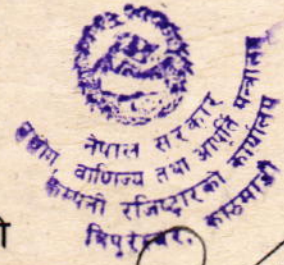 नेपाल सरकार
उद्योग वाणिज्य तथा आपूर्ति मन्त्रालय
कम्पनी रजिष्ट्रारको कार्यालय
त्रिपुरेश्वर, काठमाडौं